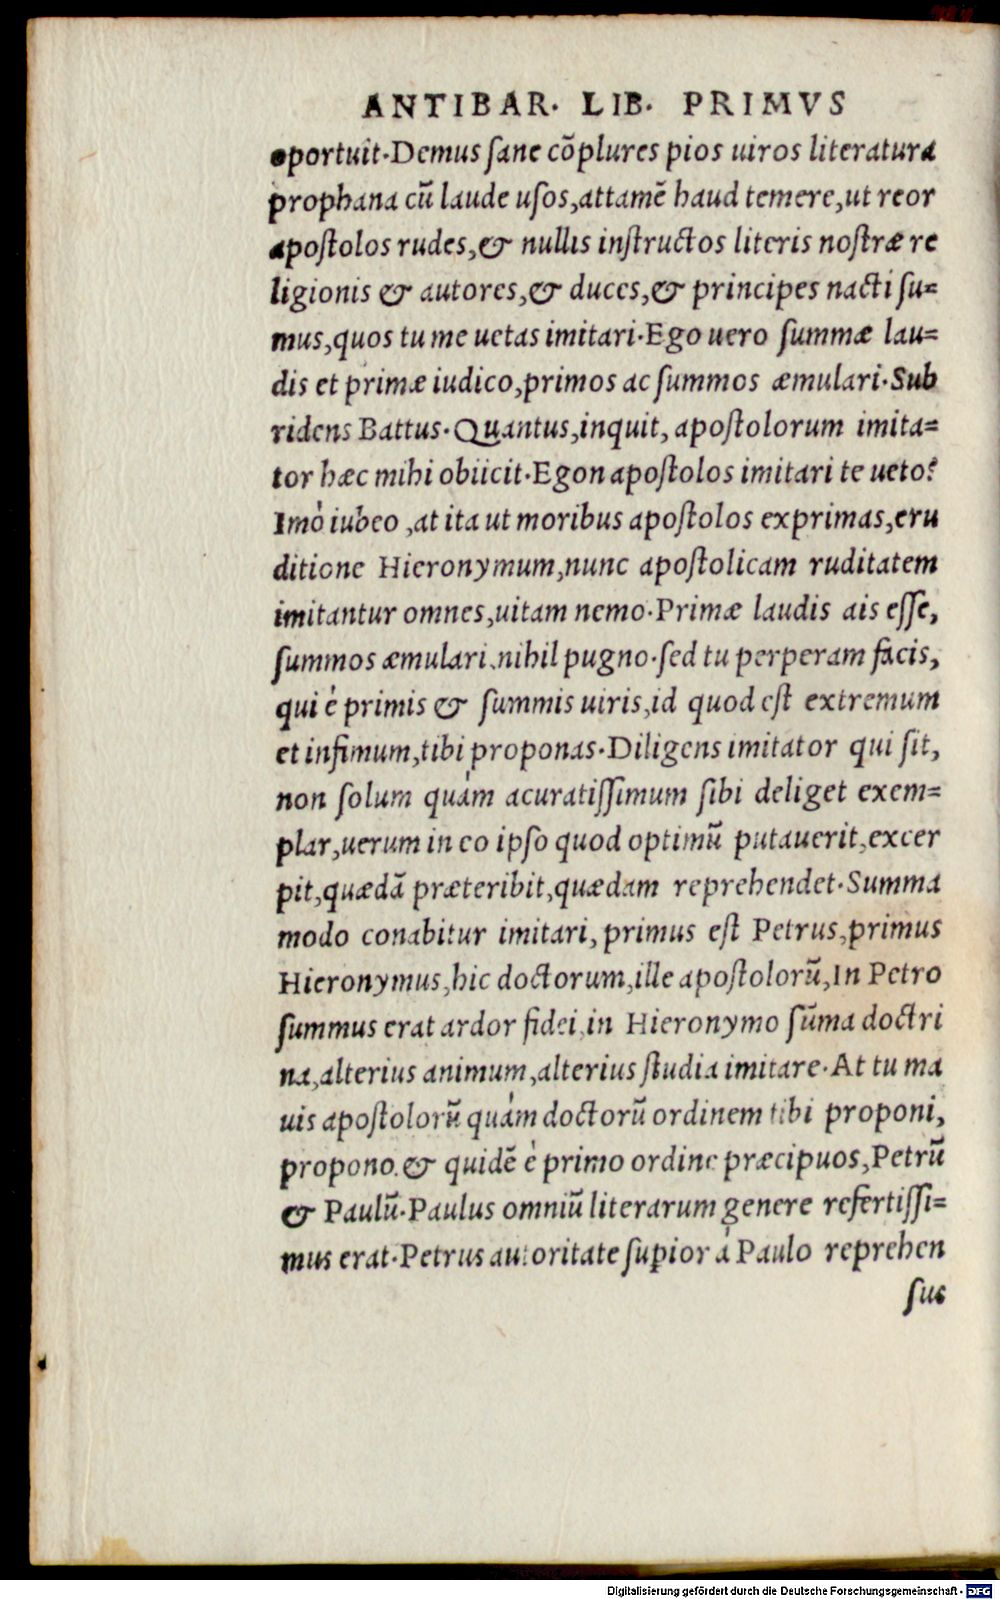 ANTIBAR. LIB. PRIMVS
oportuit. Demus sane cõplures pios uiros literatura
prophana cũ laude usos, attamẽ haud temere, ut reor
apostolos rudes, & nullis instructos literis nostræ re
ligionis & autores, & duces, & principes nacti su=
mus, quos tu me uetas imitari. Ego uero summæ lau=
dis et primæ iudico, primos ac summos æmulari. Sub
ridens Battus. Quantus, inquit, apostolorum imita=
tor hæc mihi obiicit. Egon apostolos imitari te ueto?
Imò iubeo, at ita ut moribus apostolos exprimas, eru
ditione Hieronymum, nunc apostolicam ruditatem
imitantur omnes, uitam nemo. Primæ laudis ais esse,
summos æmulari, nihil pugno. sed tu perperam facis,
qui è primis & summis uiris, id quod est extremum
et infimum, tibi proponas. Diligens imitator qui sit,
non solum quàm acuratissimum sibi deliget exem=
plar, uerum in eo ipso quod optimũ putauerit, excer
pit, quædã præteribit, quædam reprehendet. Summa
modo conabitur imitari, primus est Petrus, primus
Hieronymus, hic doctorum, ille apostolorũ, In Petro
summus erat ardor fidei, in Hieronymo sũma doctri
na, alterius animum, alterius studia imitare. At tu ma
uis apostolorũ quàm doctorũ ordinem tibi proponi,
propono. & quidẽ è primo ordine præcipuos, Petrũ
& Paulũ. Paulus omniũ literarum genere refertissi=
mus erat. Petrus autoritate supior à Paulo reprehen
sus
Digitalisierung gefördert durch die Deutsche Forschungsgemeinschaft - DFG